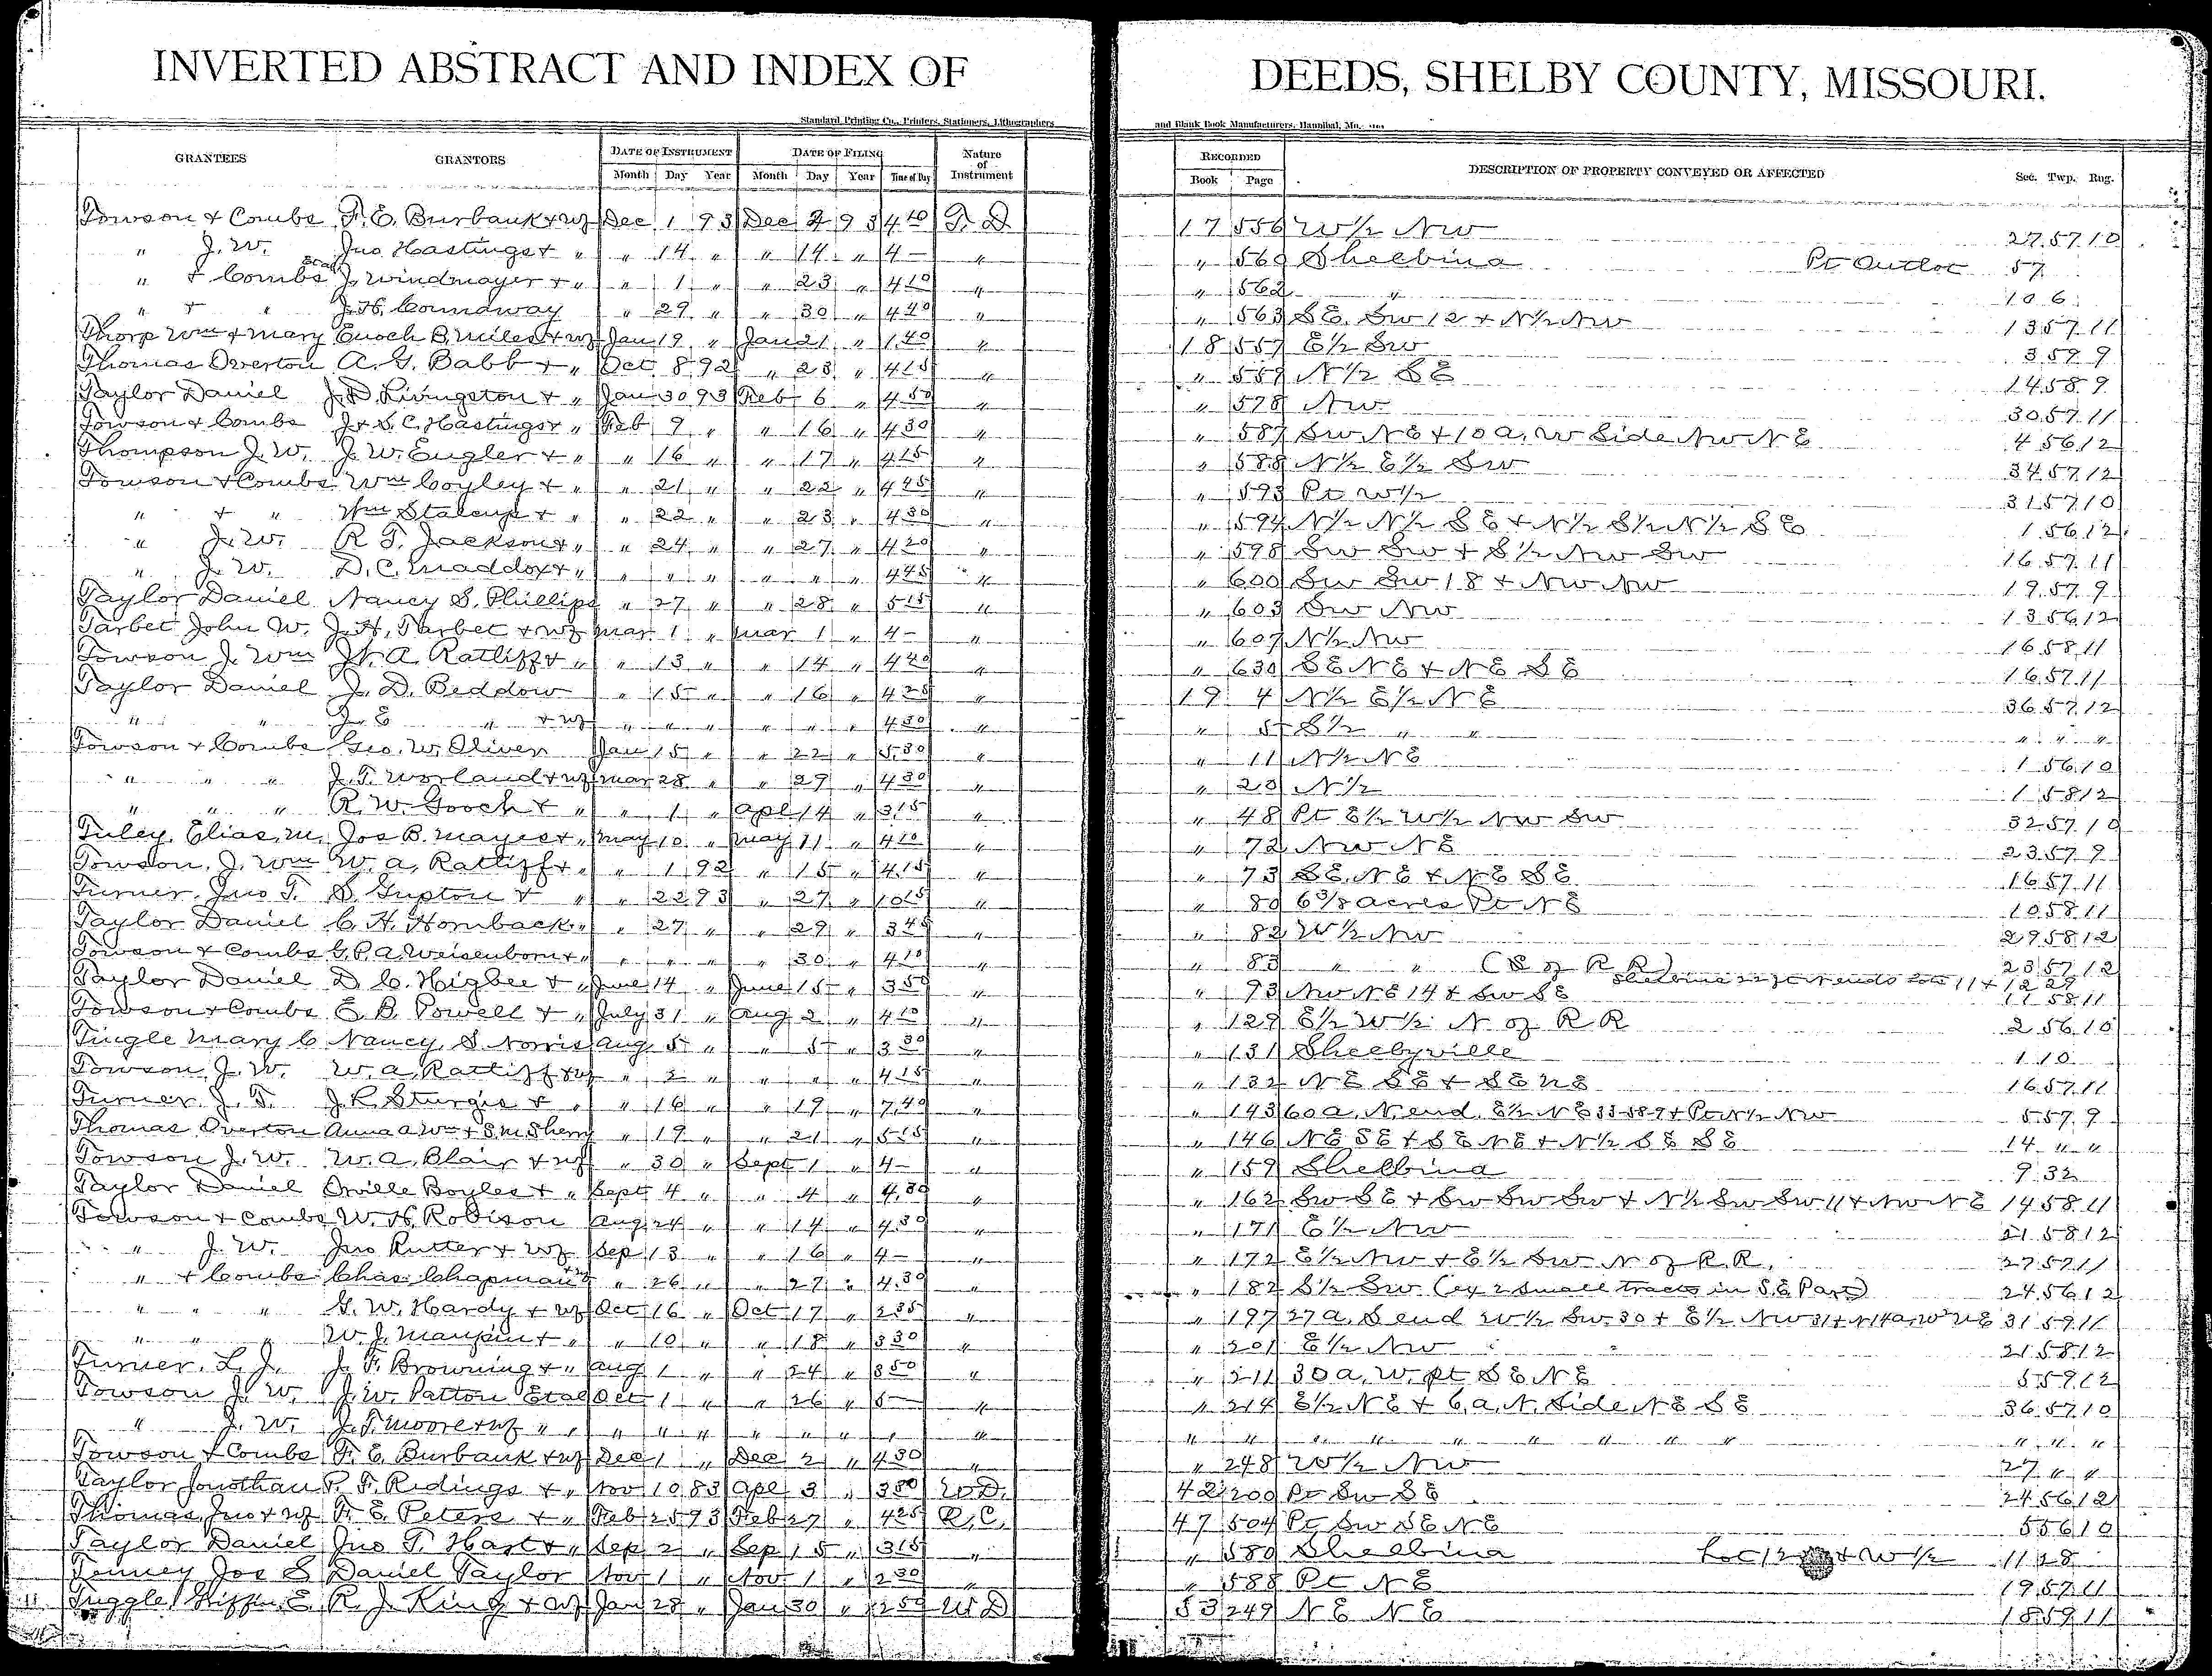 INVERTED ABSTRACT AND INDEX OF DEEDS, SHELBY COUNTY, MISSOURI.
Standard Printing Co., Printers, Stationers, Lithographers and Blank Book Manufacturers, Hannibal, Mo.
GRANTEES GRANTORS DATE OF INSTRUMENT DATE OF FILING Nature of Instrument RECORDED DESCRIPTION OF PROPERTY CONVEYED OR AFFECTED Sec. Twp. Rng.
Month Day Year Month Day Year Time of Day Book Page
Towson & Combs F. E. Burbank & wf Dec 1 93 Dec 2 93 4 10 T. D 17 556 W½ NW 27 57 10
" J. W. Jno Hastings & " " 14 " " 14 " 4 - " " 560 Shelbina Pt Outlot 57
" & Combs J. Windmayer & " " 1 " " 23 " 4 10 " " 562 " 10 6
" & " J. H. Coundway " 29 " " 30 " 4 20 " " 563 SE SW 12 & N½ NW 13 57 11
Thorp Wm & Mary Enoch B. Miles & wf Jan 19 " Jan 21 " 1 40 " 18 557 E½ SW 3 59 9
Thomas Overton A. G. Babb & " Oct 8 92 " 23 " 4 15 " " 559 N½ SE 14 58 9
Taylor Daniel J. D. Livingston & " Jan 30 93 Feb 6 " 4 50 " " 578 NW 30 57 11
Towson & Combs J & S. C. Hastings & " Feb 9 " " 16 " 4 30 " " 587 SW NE & 10 a. W Side NW NE 4 56 12
Thompson J. W. J. W. Engler & " " 16 " " 17 " 4 15 " " 588 N½ E½ SW 34 57 12
Towson & Combs Wm Coyley & " " 21 " " 22 " 4 25 " " 593 Pt W½ 31 57 10
" & " Wm Stalcup & " " 22 " " 23 " 4 30 " " 594 N½ N½ SE & N½ S½ N½ SE 1 56 12
" J. W. R. T. Jackson & " " 24 " " 27 " 4 20 " " 598 SW SW & S½ NW SW 16 57 11
" J. W. D. C. Maddox & " " " " " " " 4 45 " " 600 SW SW 18 & NW NW 19 57 9
Taylor Daniel Nancy S. Phillips " 27 " " 28 " 5 15 " " 603 SW NW 13 56 12
Tarbet John W. J. H. Tarbet & wf Mar 1 " Mar 1 " 4 - " " 607 N½ NW 16 58 11
Towson J. Wm W. A. Ratliff & " " 13 " " 14 " 4 20 " " 630 SE NE & NE SE 16 57 11
Taylor Daniel J. D. Beddow " 15 " " 16 " 4 25 " 19 4 N½ E½ NE 36 57 12
" " J. E " & wf " " " " " " 4 30 " " 5 S½ " " " " "
Towson & Combs Geo. W. Oliver Jan 15 " " 22 " 5 30 " " 11 N½ NE 1 56 10
" " " J. T. Worland & wf Mar 28 " " 29 " 4 30 " " 23 N½ 1 58 12
" " " R. W. Gooch & " " 1 " Apl 14 " 3 15 " " 48 Pt E½ W½ NW SW 32 57 10
Tuley, Elias, M. Jos B. Mayes & " May 10 " May 11 " 4 10 " " 72 NW NE 23 57 9
Towson, J. Wm W. A. Ratliff & " " 1 92 " 15 " 4 15 " " 73 SE NE & NE SE 16 57 11
Turner, Jno T. S. Gupton & " " 22 93 " 27 " 10 15 " " 80 6 3/8 acres Pt NE 10 58 11
Taylor Daniel C. H. Hornback " " 27 " " 29 " 3 45 " " 82 W½ NW 29 58 12
Towson & Combs G. P. A. Weisenborn & " " " " " 30 " 4 10 " " 83 " " (S of R R) 23 57 12
Taylor Daniel D. C. Higbee & " June 14 " June 15 " 3 50 " " 93 NW NE 14 & SW SE 11 58 11
Towson & Combs E. B. Powell & " July 31 " Aug 2 " 4 10 " " 129 E½ W½ N of R R 2 56 10
Tingle Mary C Nancy S. Norris Aug 5 " " 5 " 3 30 " " 131 Shelbyville 1 10
Towson, J. W. W. A. Ratliff & wf " 2 " " " " 4 15 " " 132 NE SE & SE NE 16 57 11
Turner, J. T. J. R. Sturgis & " " 16 " " 19 " 7 40 " " 143 60 a. N. end E½ NE 33-58-9 & Pt N½ NW 5 57 9
Thomas Overton Anna A Wm & S. M. Sherry " 19 " " 21 " 5 15 " " 146 NE SE & SE NE & N½ SE SE 14 " "
Towson J. W. W. A. Blair & wf " 30 " Sept 1 " 4 - " " 159 Shelbina 9 32
Taylor Daniel Orville Boyles & " Sept 4 " " 4 " 4 30 " " 162 SW SE & SW SW SW & N½ SW SW 11 & NW NE 14 58 11
Towson & Combs W. H. Robison Aug 24 " " 14 " 4 30 " " 171 E½ NW 21 58 12
" J. W. Jno Rutter & wf Sep 13 " " 16 " 4 - " " 172 E½ NW & E½ SW N of R. R. 27 57 11
" & Combs Chas. Chapman & wf " 26 " " 27 " 4 30 " " 182 S½ SW (ex 2 small tracts in S.E Part) 24 56 12
" " " G. W. Hardy & wf Oct 16 " Oct 17 " 2 35 " " 197 27 a. S end W½ SW 30 & E½ NW 31 & N 14 a. W½ NE 31 59 11
" " " W. J. Maupin & " " 10 " " 18 " 3 30 " " 201 E½ NW 21 58 12
Turner, L. J. J. F. Browning & " Aug 1 " " 24 " 3 50 " " 211 30 a. W. pt SE NE 5 59 12
Towson J. W. J. W. Patton Etal Oct 1 " " 26 " 5 - " " 214 E½ NE & 6 a. N. Side NE SE 36 57 10
" J. W. J. T. Moore & wf " " " " " " " " " " " " " " " " " " " " "
Towson & Combs F. E. Burbank & wf Dec 1 " Dec 2 " 4 30 " " 248 W½ NW 27 " "
Taylor Jonothan P. F. Ridings & " Nov 10 83 Apl 3 " 3 50 W.D. 42 200 Pt SW SE 24 56 12
Thomas, Jno & wf F. E. Peters & " Feb 25 93 Feb 27 " 4 25 Q. C. 47 504 Pt SW SE NE 5 56 10
Taylor Daniel Jno T. Hart & " Sep 2 " Sep 15 " 3 15 " " 580 Shelbina & W½ 11 28
Tenney Jos S Daniel Taylor Nov 1 " Nov 1 " 2 30 " " 588 Pt NE 19 57 11
Tuggle E. R. J. King & wf Jan 28 " Jan 30 " 2 50 W D 53 249 NE NE 18 59 11